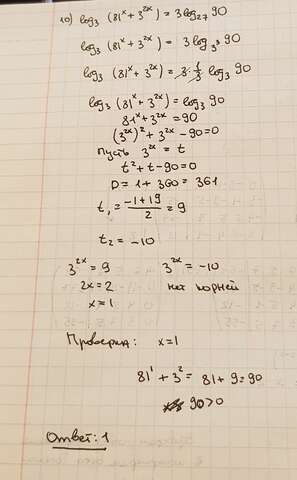 10) log₃ (81ˣ + 3²ˣ) = 3 log₂₇ 90
log₃ (81ˣ + 3²ˣ) = 3 log₃³ 90
log₃ (81ˣ + 3²ˣ) = 3 · 1/3 log₃ 90
log₃ (81ˣ + 3²ˣ) = log₃ 90
81ˣ + 3²ˣ = 90
(3²ˣ)² + 3²ˣ - 90 = 0
Пусть 3²ˣ = t
t² + t - 90 = 0
D = 1 + 360 = 361
t₁ = (-1 + 19)/2 = 9
t₂ = -10
3²ˣ = 9 3²ˣ = -10
2x = 2 нет корней
x = 1
Проверка: x = 1
81¹ + 3² = 81 + 9 = 90
90 > 0
Ответ: 1